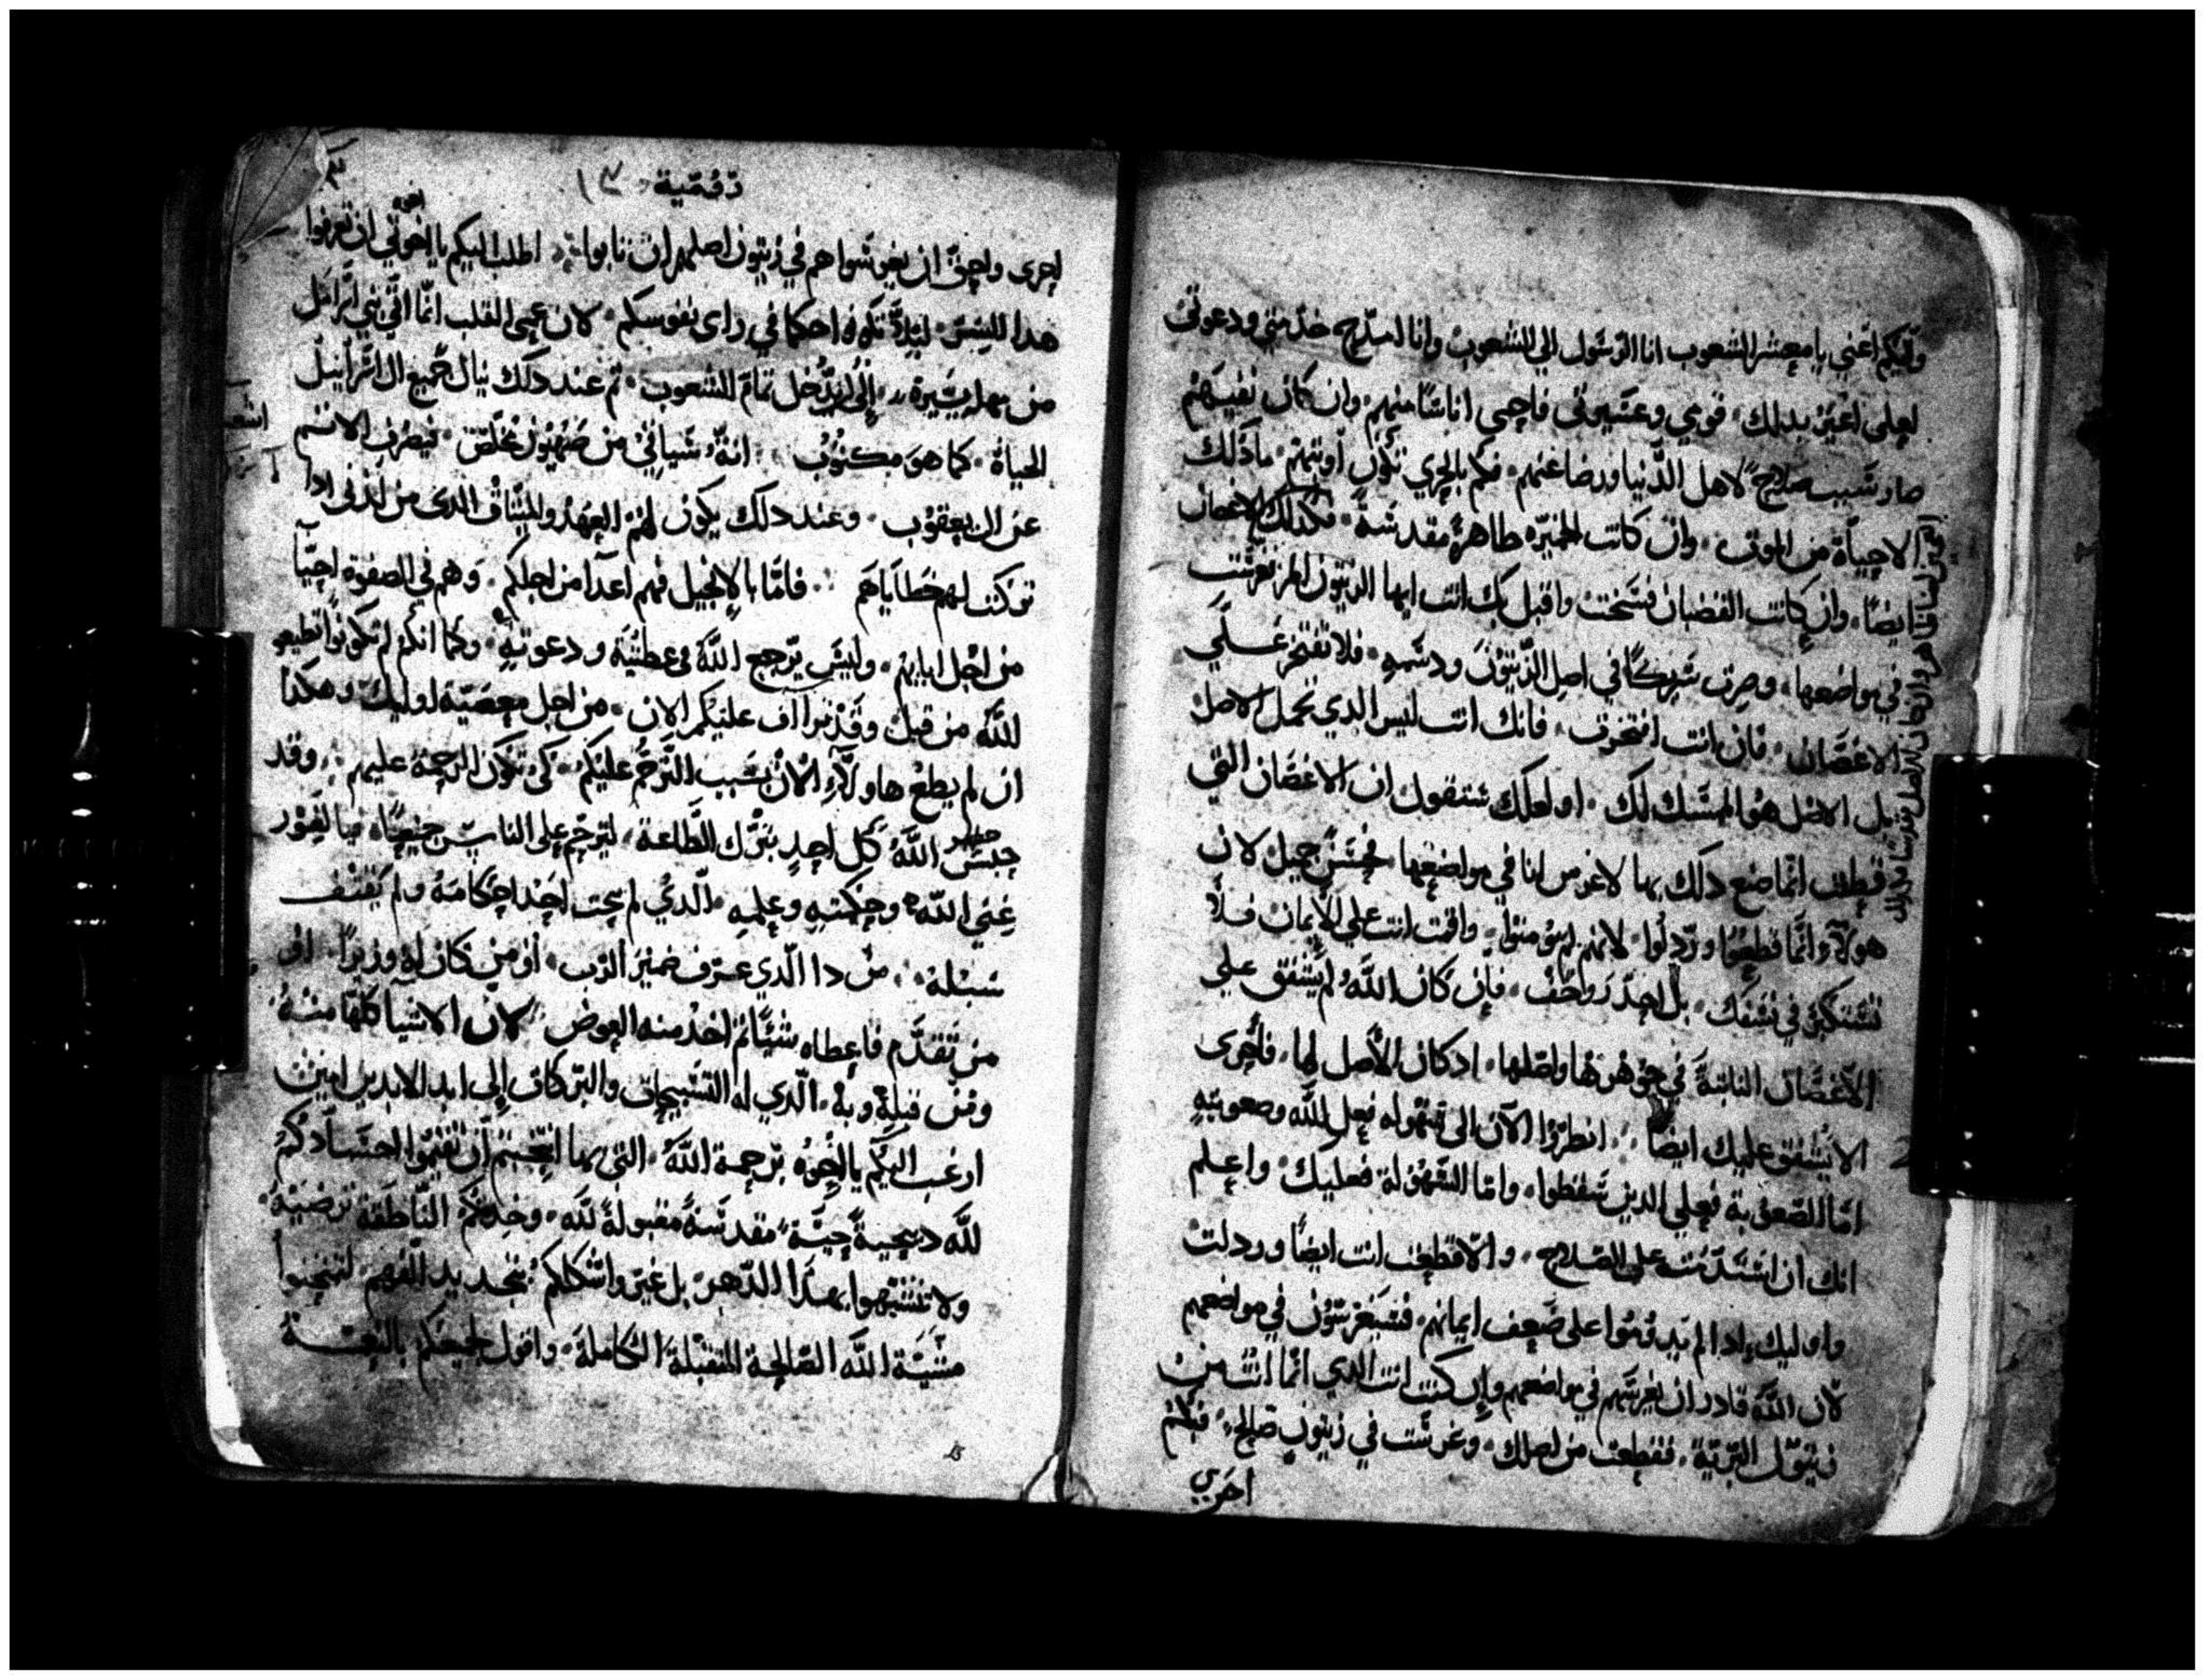 ولكم اعني يا معشر الشعوب انا الرسول الي الشعوب وانا امدح خدمتي ودعوتى
لعلى اغير بدلك قومي وعشيرتى فاحيى اناسًا منهم وان كان نفيهم
صار سبب صلاح لاهل الدنيا ورضا عنهم فكم بالحري تكون أوبتهم ما دلك
الا حياة من الموتى وان كانت الخميره طاهرة مقدسة فكدلك الاغصان
ايضًا وان كانت القضبان فسخت واقبل بك انت ايها الزيتون المر فغرست
في مواضعها وصرت شريكًا في اصل الزيتون ودسمه فلا تفتخر علي
الاغصان فان انت افتخرت فانك انت ليس الدي تحمل الاصل
بل الاصل هو الممسك لك او لعلك ستقول ان الاغصان التي
قطعت انما صنع دلك بها لاغرس انا في مواضعها فحسن جميل لان
هولاء انما قطعوا وردلوا لانهم لم يومنوا واقمت انت علي الايمان فلا
تستكبر في نفسك بل احدر وخف فإن كان الله لم يشفق على
الاغصان النابتة في جوهرها واصلها ادكان الأصل لها فأحرى
الا يشفق عليك ايضًا انظروا الآن الى سهوله فعل الله وصعوبته
امّا الصعوبة فعلي الدين سقطوا واما السهولة فعليك واعلم
انك ان استدمت على الصلاح والا قطعت انت ايضًا وردلت
واوليك ادا لم يدوموا على ضعف ايمانهم فسيغرسون في مواضعهم
لان الله قادر ان يغرسهم في مواضعهم وإن كنت انت الدي انما انت من
زيتون البرية فقطعت من اصلك وغرست في زيتون صالح فبكم
احري
دقمقية ١٣
احرى واحق ان يغرسوا هم في زيتون اصلهم ان تابوا اطلب اليكم يا اخوتي ان تعرفوا
هدا السر ليلا تكونوا حكما في راى نفوسكم لان عمى القلب انما اتى بني اسراىل
من مهله يسيرة إلى ان يدخل تمام الشعوب ثم عند دلك ينال جميع ال اسراييل
الحياة كما هو مكتوب انه سياتي من صهيون مخلص فيصرف الاثم
عن ال يعقوب وعند دلك يكون لهم العهد والميثاق الدى من لدنى ادا
تركت لهم خطاياهم فامّا بالإنجيل فهم اعدآ من اجلكم وهم في الصفوة احبّآ
من اجل ابايهم وليس يرجع الله في عطيته ودعوته وكما انكم لم تكونوا تطيعو
لله من قبل وقد تراأف عليكم الان من اجل معصية اوليك وهكدا
ان لم يطع هاولآء الآن بسبب الترحم عليكم كى تكون الرحمة عليهم وقد
حبس الله كل احدٍ بترك الطاعة ليرحم على الناس جميعًا فيا لغور
غنى الله وحكمته وعلمه الدي لم يبحث احد احكامه ولم يقتف
سبله من دا الدي عرف ضمير الرب أو من كان له وزيرًا او
من تقدم فاعطاه شيًّا ثم اخد منه العوض لان الاشيا كلها منه
ومن قبله وبه الدي له التسبيحات والبركات إلى ابد الابدين امين
ارغب اليكم يا اخوه برحمة الله التى بها احبكم أن تقيموا اجسادكم
لله دبيحة حية مقدسة مقبولة لله وخدمتكم الناطقة ترضية
ولا تتشبهوا بهدا الدهر بل غيروا اشكالكم بتجديد الفهم لتمتحنوا
مشية الله الصالحة المتقبلة الكاملة واقول لجميعكم بالنعمة